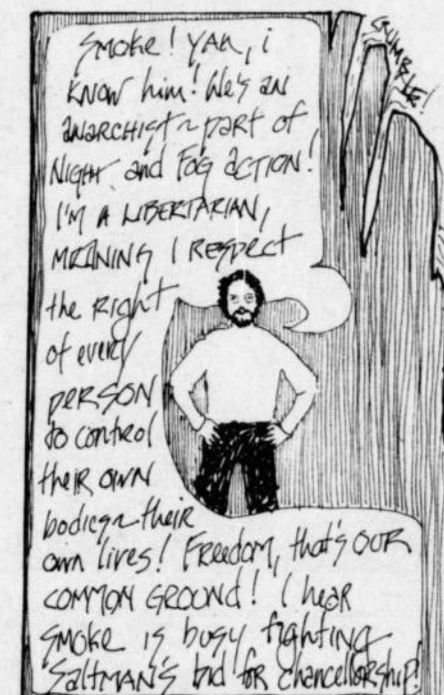 SMOKE! YAH, i
KNOW him! He's an
anarchist ~ part of
Night and Fog action!
I'M A LIBERTARIAN,
MEANING I RESPECT
the Right
of every
PERSON
to control
their own
bodies ~ their
own lives! FREEDOM, that's OUR
COMMON GROUND! I hear
SMOKE is busy fighting
Saltman's bid for chancellorship!